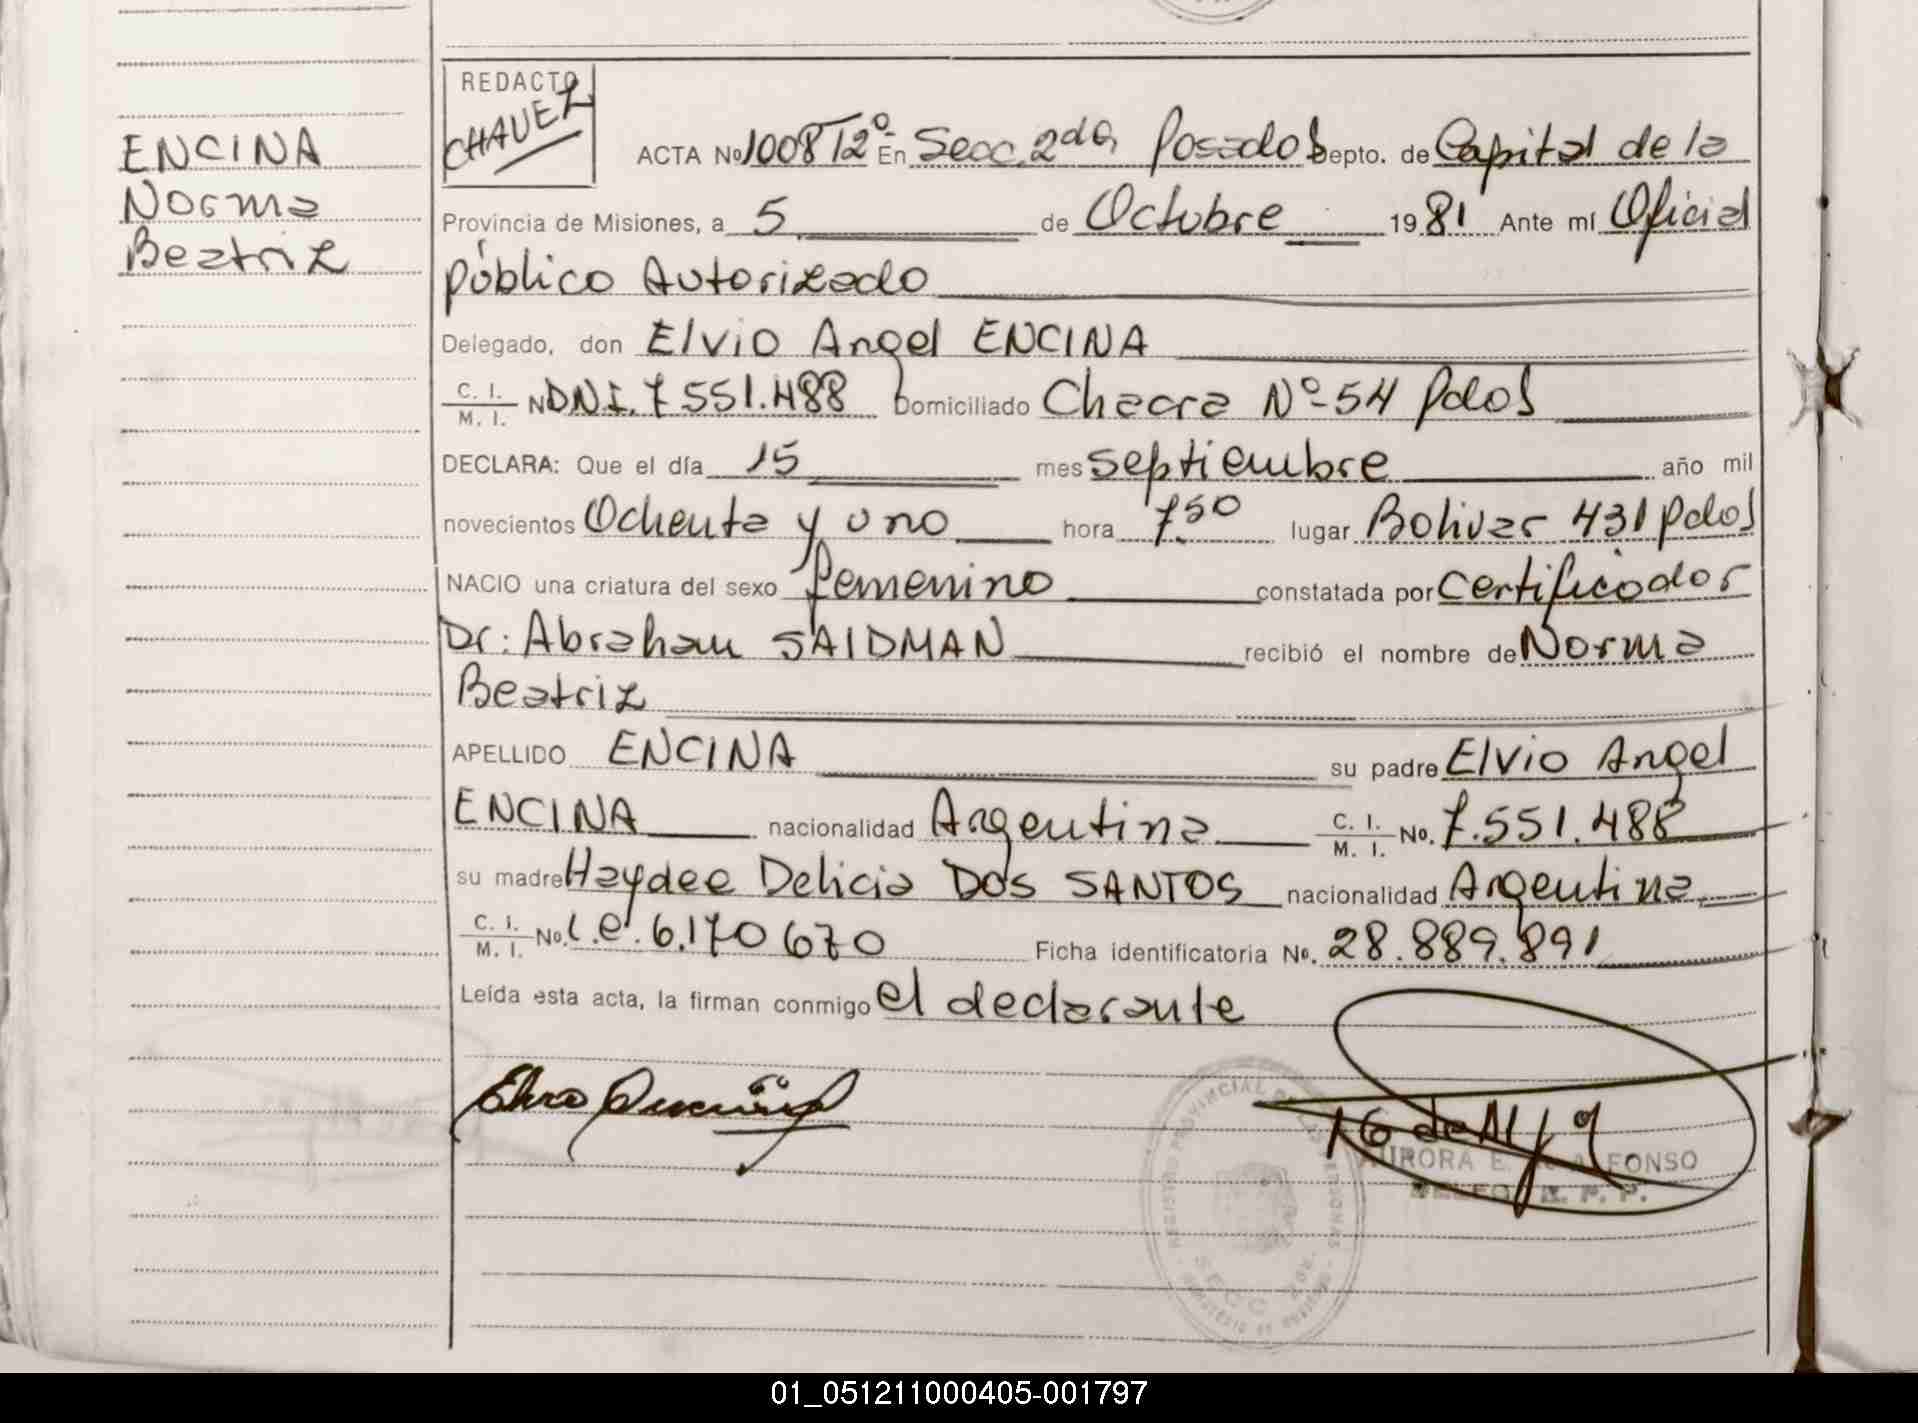 ENCINA
Norma
Beatriz
REDACTO
CHAVEZ
ACTA No 1008 T2º En Secc. 2da, Posadas Depto. de Capital de la
Provincia de Misiones, a 5 de Octubre 1981 Ante mí Oficial
Público Autorizado
Delegado, don Elvio Angel ENCINA
C. I. / M. I. N DNI. 7551.488 Domiciliado Chacra Nº 54 Pdas
DECLARA: Que el día 15 mes septiembre año mil
novecientos Ochenta y uno hora 7.50 lugar Bolivar 431 Pdas
NACIO una criatura del sexo femenino constatada por Certificador
Dr: Abraham SAIDMAN recibió el nombre de Norma
Beatriz
APELLIDO ENCINA su padre Elvio Angel
ENCINA nacionalidad Argentina C. I. / M. I. No. 7.551.488
su madre Haydee Delicia DOS SANTOS nacionalidad Argentina
C. I. / M. I. No. L.e. 6.170670 Ficha identificatoria No. 28.889.891
Leída esta acta, la firman conmigo el declarante
REGISTRO PROVINCIAL DE LAS PERSONAS
AURORA E. ALFONSO
R. P. P.
01_051211000405-001797